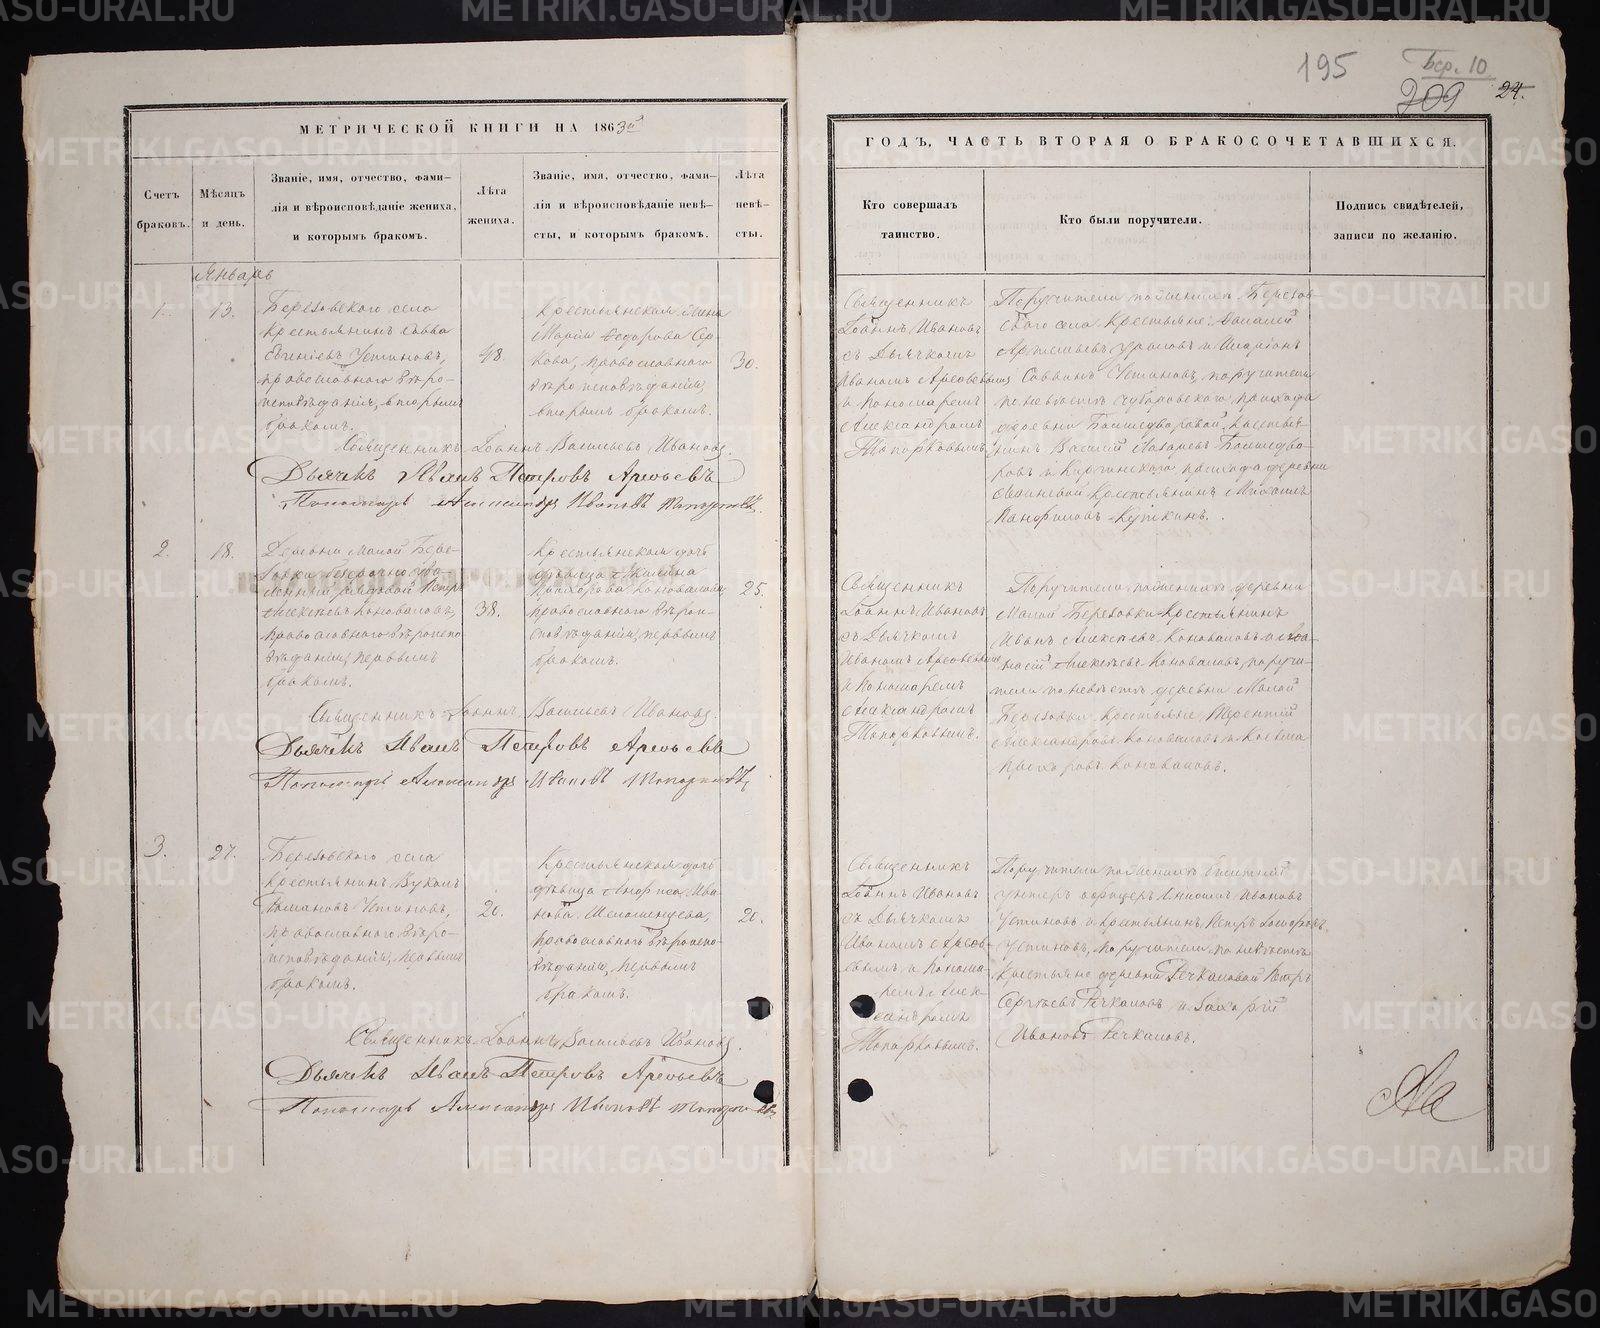 195
Бер. 10
209
24.
МЕТРИЧЕСКОЙ КНИГИ НА 1863й
Счетъ браковъ.
Мѣсяцъ и день.
Званіе, имя, отчество, фами-
лія и вѣроисповѣданіе жениха,
и которымъ бракомъ.
Лѣта жениха.
Званіе, имя, отчество, фами-
лія и вѣроисповѣданіе невѣ-
сты, и которымъ бракомъ.
Лѣта невѣ-
сты.
Январь
1.
13.
Березовскаго села
крестьянинъ Савва
Устиновъ,
православнаго вѣро-
исповѣданія, вторымъ
бракомъ.
48.
Крестьянская жена
Марія Ѳедорова Сер-
кова, православнаго
вѣроисповѣданія,
вторымъ бракомъ.
30.
Священникъ Іоаннъ Васильевъ Ивановъ.
Дьячекъ Иванъ Петровъ Арефьевъ
Пономарь Александръ Ивановъ Топорковъ.
2.
18.
Деревни Малой Бере-
зовки
рядовой Петръ
Алексѣевъ Коноваловъ,
православнаго вѣроиспо-
вѣданія, первымъ
бракомъ.
38.
Крестьянская дочь
дѣвица
Прохорова Коновалова,
православнаго вѣрои-
сповѣданія, первымъ
бракомъ.
25.
Священникъ Іоаннъ Васильевъ Ивановъ.
Дьячекъ Иванъ Петровъ Арефьевъ
Пономарь Александръ Ивановъ Топорковъ,
3.
27.
Березовскаго села
крестьянинъ Вуколъ
Романовъ Устиновъ,
православнаго вѣро-
исповѣданія, первымъ
бракомъ.
20.
Крестьянская дочь
дѣвица Анфиса Ива-
нова
православнаго вѣроиспо-
вѣданія, первымъ
бракомъ.
20.
Священникъ Іоаннъ Васильевъ Ивановъ.
Дьячекъ Иванъ Петровъ Арефьевъ
Пономарь Александръ Ивановъ Топорковъ
ГОДЪ, ЧАСТЬ ВТОРАЯ О БРАКОСОЧЕТАВШИХСЯ.
Кто совершалъ
таинство.
Кто были поручители.
Подпись свидѣтелей,
записи по желанію.
Священникъ
Іоаннъ Ивановъ
съ Дьячкомъ
Иваномъ Арефьевымъ
и Пономаремъ
Александромъ
Топорковымъ.
Поручители по женихѣ Березов-
скаго села крестьяне:
Артемьевъ и Иларіонъ
Саввинъ Устиновъ, поручители
по невѣстѣ прихода
деревни крестья-
нинъ Василій Лазаревъ
и прихода деревни
крестьянинъ Михаилъ
Панфиловъ Куткинъ.
Священникъ
Іоаннъ Ивановъ
съ Дьячкомъ
Иваномъ Арефьевымъ
и Пономаремъ
Александромъ
Топорковымъ.
Поручители по женихѣ деревни
Малой Березовки крестьянинъ
Иванъ Алексѣевъ Коноваловъ и Аѳа-
насій Алексѣевъ Коноваловъ, поручи-
тели по невѣстѣ деревни Малой
Березовки крестьяне Терентій
Александровъ Коноваловъ и Косьма
Прохоровъ Коноваловъ.
Священникъ
Іоаннъ Ивановъ
съ Дьячкомъ
Иваномъ Арефь-
евымъ и Понома-
ремъ Алек-
сандромъ
Топорковымъ.
Поручители по женихѣ
унтеръ офицеръ Ивановъ
Устиновъ и крестьянинъ Петръ
Устиновъ, поручители по невѣстѣ
крестьяне деревни Речкаловой Петръ
Сергѣевъ Речкаловъ и Захарій
Ивановъ Речкаловъ.
METRIKI.GASO-URAL.RU